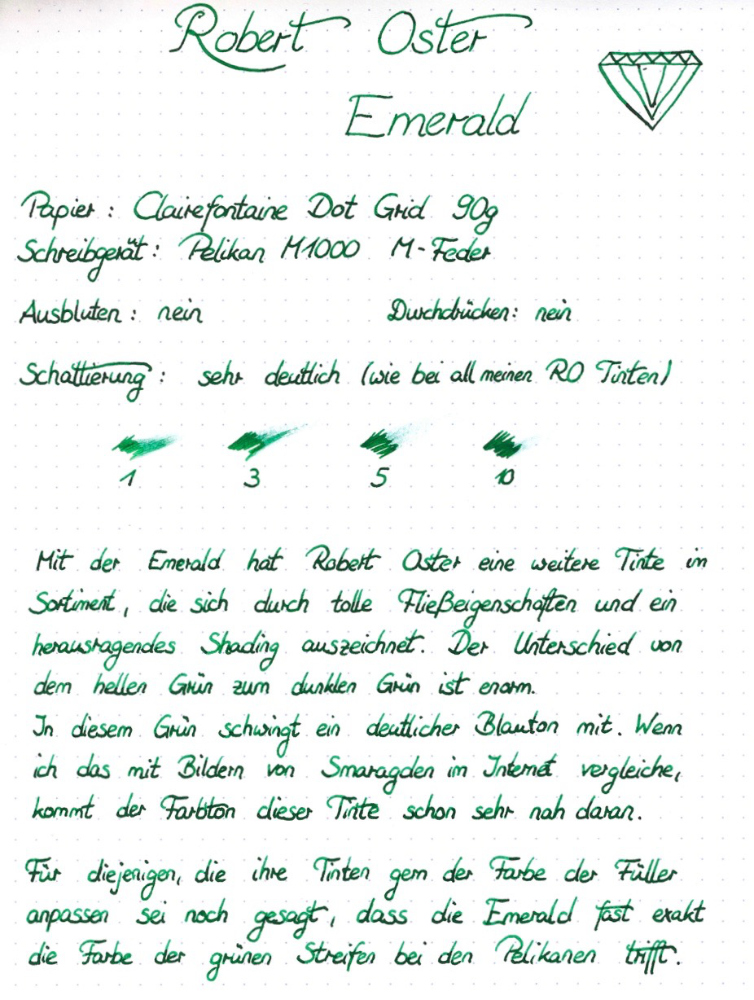 Robert Oster
Emerald
Papier: Clairefontaine Dot Grid 90g
Schreibgerät: Pelikan M1000 M-Feder
Ausbluten: nein Durchdrücken: nein
Schattierung: sehr deutlich (wie bei all meinen RO Tinten)
1 3 5 10
Mit der Emerald hat Robert Oster eine weitere Tinte im
Sortiment, die sich durch tolle Fließeigenschaften und ein
herausragendes Shading auszeichnet. Der Unterschied von
dem hellen Grün zum dunklen Grün ist enorm.
In diesem Grün schwingt ein deutlicher Blauton mit. Wenn
ich das mit Bildern von Smaragden im Internet vergleiche,
kommt der Farbton dieser Tinte schon sehr nah daran.
Für diejenigen, die ihre Tinten gern der Farbe der Füller
anpassen sei noch gesagt, dass die Emerald fast exakt
die Farbe der grünen Streifen bei den Pelikanen trifft.